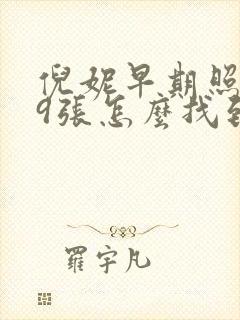 倪妮早期照
9張怎麼找到
羅宇凡